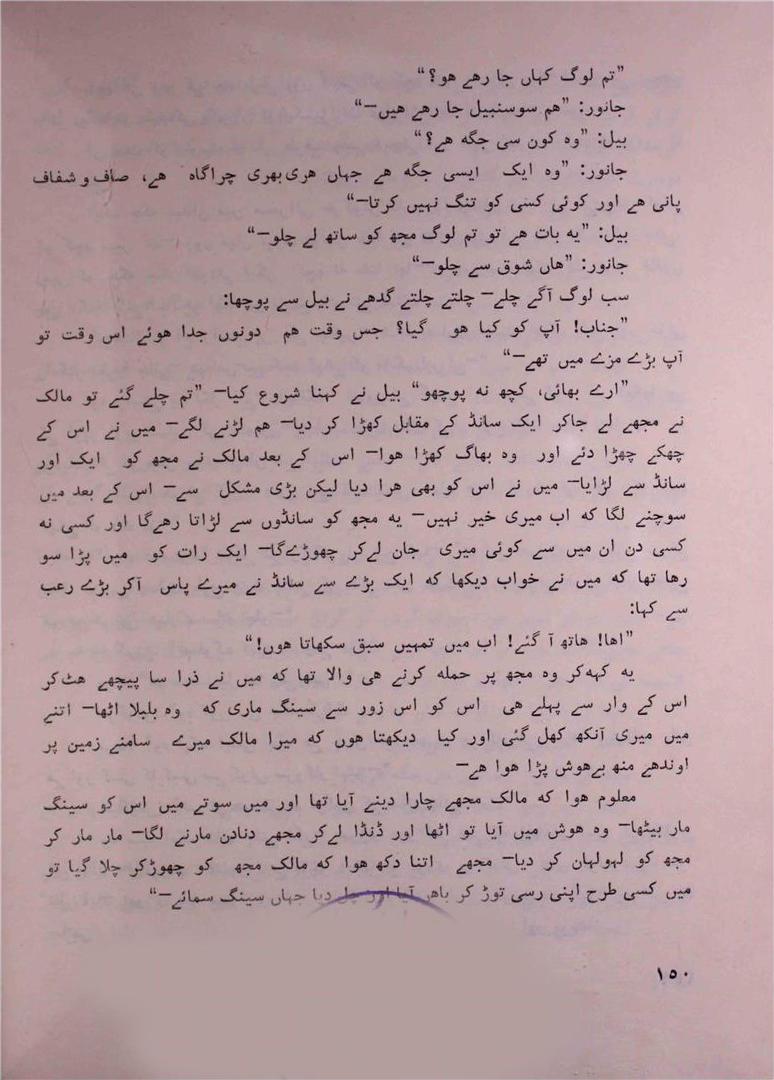 ”تم لوگ کہاں جا رہے ہو؟“
جانور: ”ہم سوسنبیل جا رہے ہیں—“
بیل: ”وہ کون سی جگہ ہے؟“
جانور: ”وہ ایک ایسی جگہ ہے جہاں ہری بھری چراگاہ ہے، صاف و شفاف
پانی ہے اور کوئی کسی کو تنگ نہیں کرتا—“
بیل: ”یہ بات ہے تو تم لوگ مجھ کو ساتھ لے چلو—“
جانور: ”ہاں شوق سے چلو—“
سب لوگ آگے چلے— چلتے چلتے گدھے نے بیل سے پوچھا:
”جناب! آپ کو کیا ہو گیا؟ جس وقت ہم دونوں جدا ہوئے اس وقت تو
آپ بڑے مزے میں تھے—“
”ارے بھائی، کچھ نہ پوچھو“ بیل نے کہنا شروع کیا— ”تم چلے گئے تو مالک
نے مجھے لے جاکر ایک سانڈ کے مقابل کھڑا کر دیا— ہم لڑنے لگے— میں نے اس کے
چھکے چھڑا دئے اور وہ بھاگ کھڑا ہوا— اس کے بعد مالک نے مجھ کو ایک اور
سانڈ سے لڑایا— میں نے اس کو بھی ہرا دیا لیکن بڑی مشکل سے— اس کے بعد میں
سوچنے لگا کہ اب میری خیر نہیں— یہ مجھ کو سانڈوں سے لڑاتا رہےگا اور کسی نہ
کسی دن ان میں سے کوئی میری جان لےکر چھوڑےگا— ایک رات کو میں پڑا سو
رہا تھا کہ میں نے خواب دیکھا کہ ایک بڑے سے سانڈ نے میرے پاس آکر بڑے رعب
سے کہا:
”اھا! ہاتھ آ گئے! اب میں تمہیں سبق سکھاتا ہوں!“
یہ کہہکر وہ مجھ پر حملہ کرنے ہی والا تھا کہ میں نے ذرا سا پیچھے ہٹکر
اس کے وار سے پہلے ہی اس کو اس زور سے سینگ ماری کہ وہ بلبلا اٹھا— اتنے
میں میری آنکھ کھل گئی اور کیا دیکھتا ہوں کہ میرا مالک میرے سامنے زمین پر
اوندھے منھ بےہوش پڑا ہوا ہے—
معلوم ہوا کہ مالک مجھے چارا دینے آیا تھا اور میں سوتے میں اس کو سینگ
مار بیٹھا— وہ ہوش میں آیا تو اٹھا اور ڈنڈا لےکر مجھے دنادن مارنے لگا— مار مار کر
مجھ کو لہولہان کر دیا— مجھے اتنا دکھ ہوا کہ مالک مجھ کو چھوڑکر چلا گیا تو
میں کسی طرح اپنی رسی توڑ کر باہر آیا اور چل دیا جہاں سینگ سمائے—“
۱۵۰